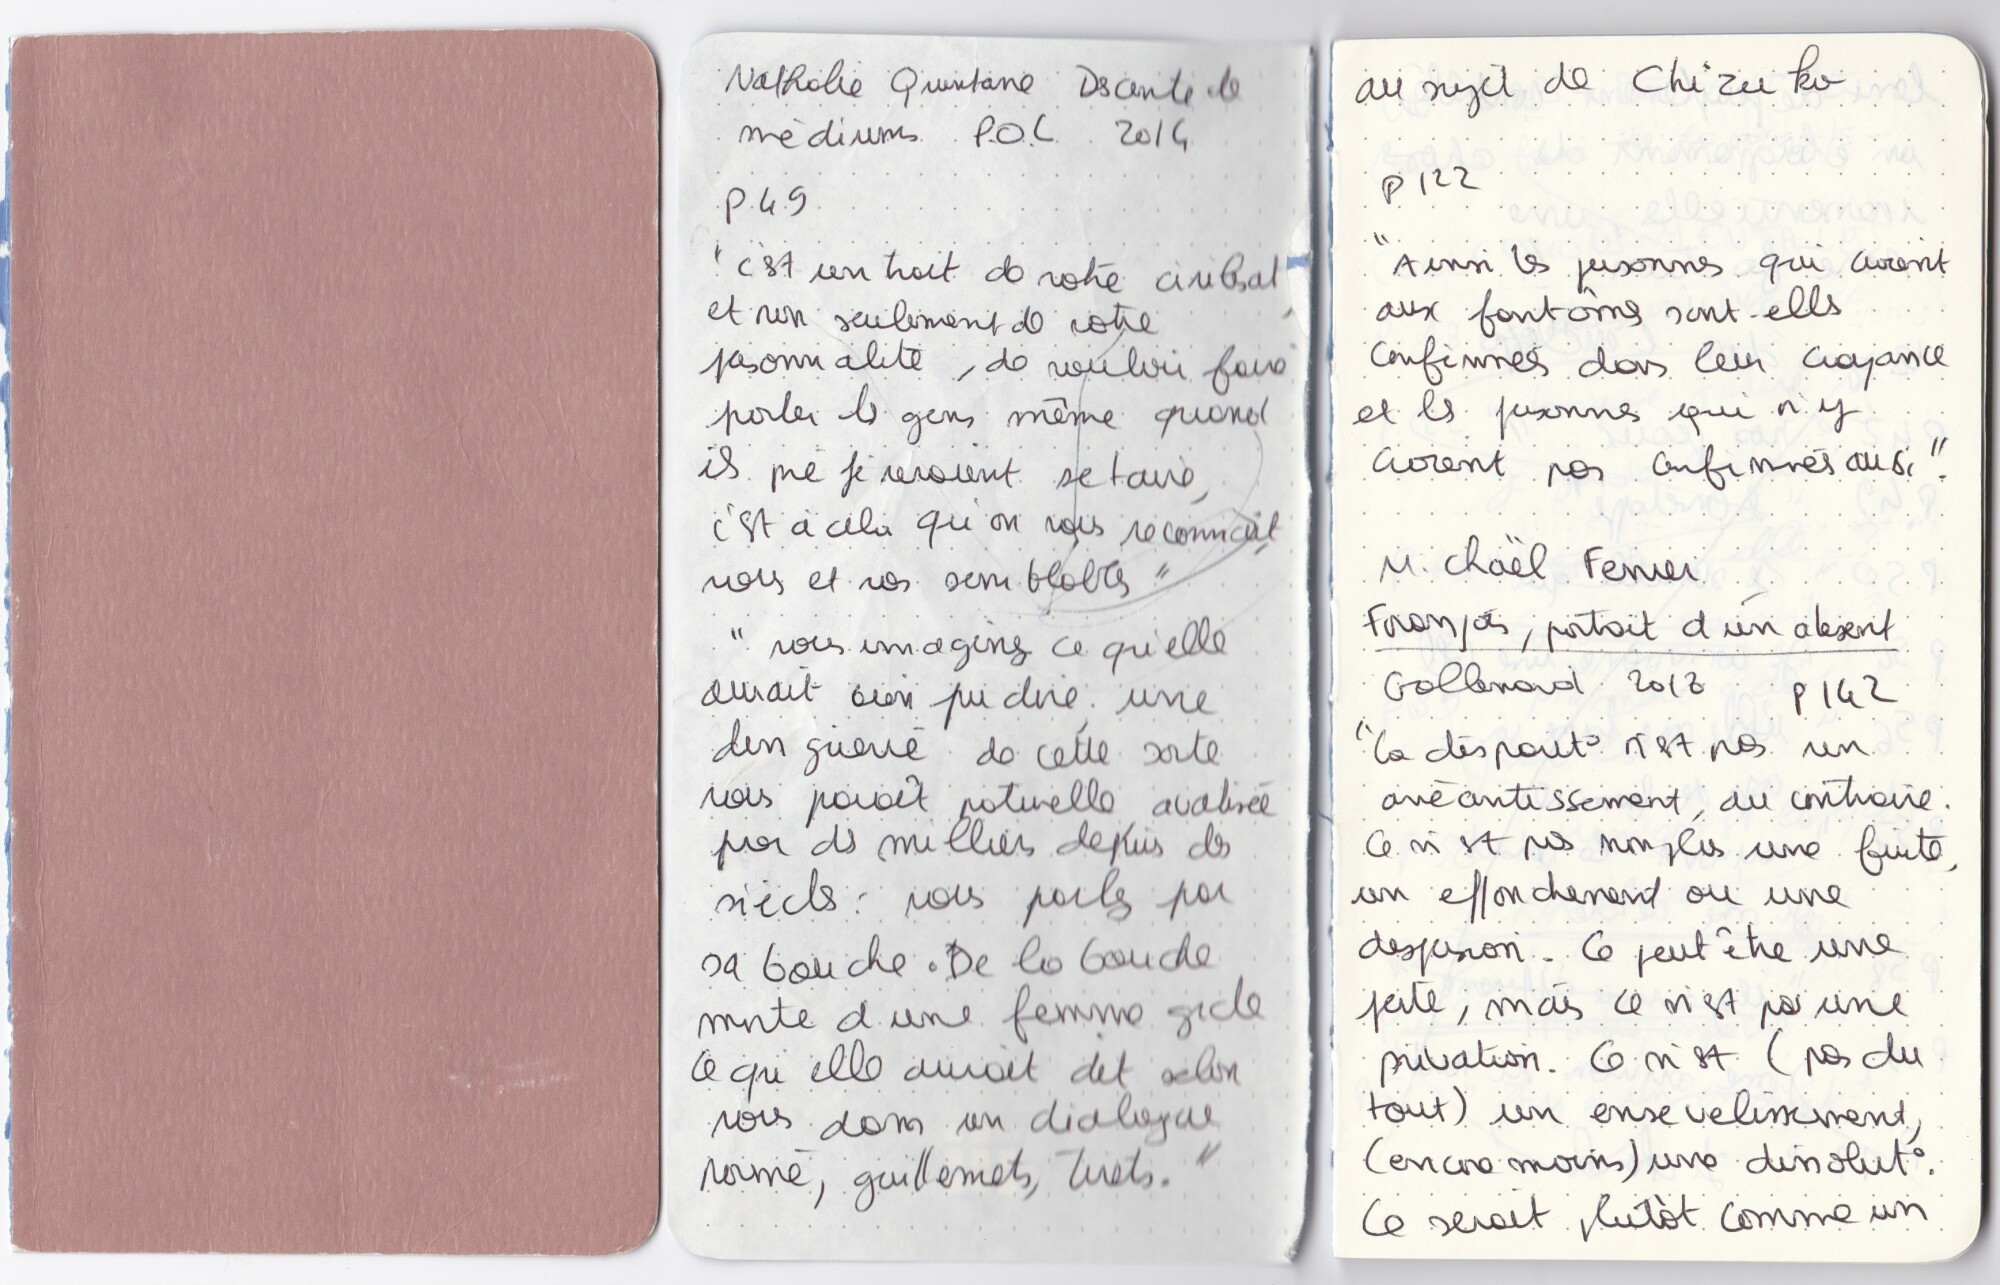 Nathalie Quintane Descente de
médiums P.O.L 2014
P.49
"c'est un trait de votre civilisat°
et non seulement de votre
personnalité, de vouloir faire
parler les gens même quand
ils préféreraient se taire,
c'est à cela qu'on vous reconnaît
vous et vos semblables"
"vous imaginez ce qu'elle
aurait bien pu dire, une
dinguerie de cette sorte
vous paraît naturelle, avalisée
par des milliers depuis des
siècles : vous parlez par
sa bouche. De la bouche
morte d'une femme gicle
ce qu'elle aurait dit selon
vous dans un dialogue
normé, guillemets, tirets."
au sujet de Chizuko
P 122
"Ainsi les personnes qui croient
aux fantômes sont-elles
confirmées dans leur croyance
et les personnes qui n'y
croient pas confirmées aussi".
Michaël Ferrier
François, portrait d'un absent
Gallimard 2018 P 142
"La disparit° n'est pas un
anéantissement, au contraire.
Ce n'est pas non plus une fuite,
un effondrement ou une
dispersion. Ce peut être une
perte, mais ce n'est pas une
privation. Ce n'est (pas du
tout) un ensevelissement,
(encore moins) une dissolut°.
Ce serait plutôt comme un